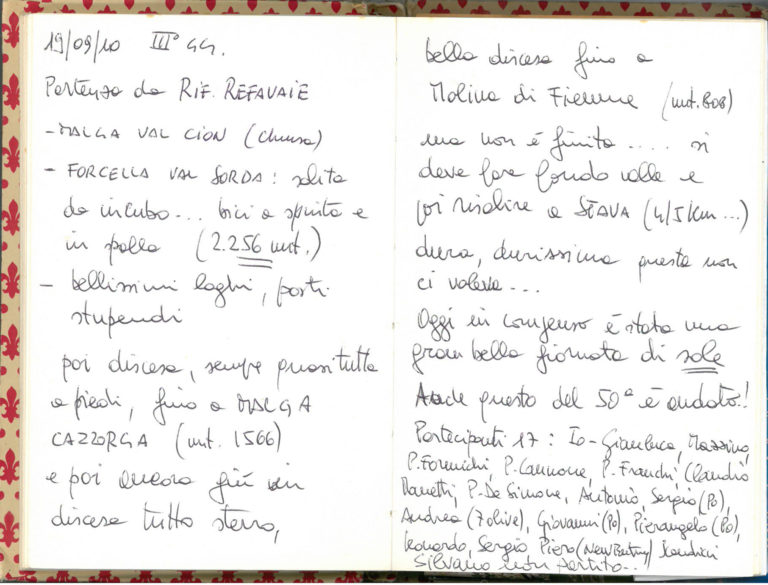 19/09/10 III° GG.
Partenza da RIF. REFAVAIE
- MALGA VAL CION (chiusa)
- FORCELLA VAL SORDA : salita
da incubo... bici a spinta e
in spalla (2.256 mt.)
- bellissimi laghi, posti
stupendi
poi discesa, sempre quasi tutta
a piedi, fino a MALGA
CAZZORGA (mt. 1566)
e poi ancora giù in
discesa tutto sterro,
bella discesa fino a
Molina di Fiemme (mt. 808)
ma non è finita .... si
deve fare fondo valle e
poi risalire a STAVA (4/5 km...)
dura, durissima questa non
ci voleva...
Oggi in compenso è stata una
gran bella giornata di sole
Anche questo del 50° è andato!!
Partecipanti 17 : Io - Gianluca, Massimo,
P. Formichi, P. Cannone, P. Franchi, Claudio
P. De Simone, Antonio, Sergio (Po),
Andrea (7 olive), Giovanni (Po), Pierangelo (Po),
Leonardo, Sergio, Piero
Silvano